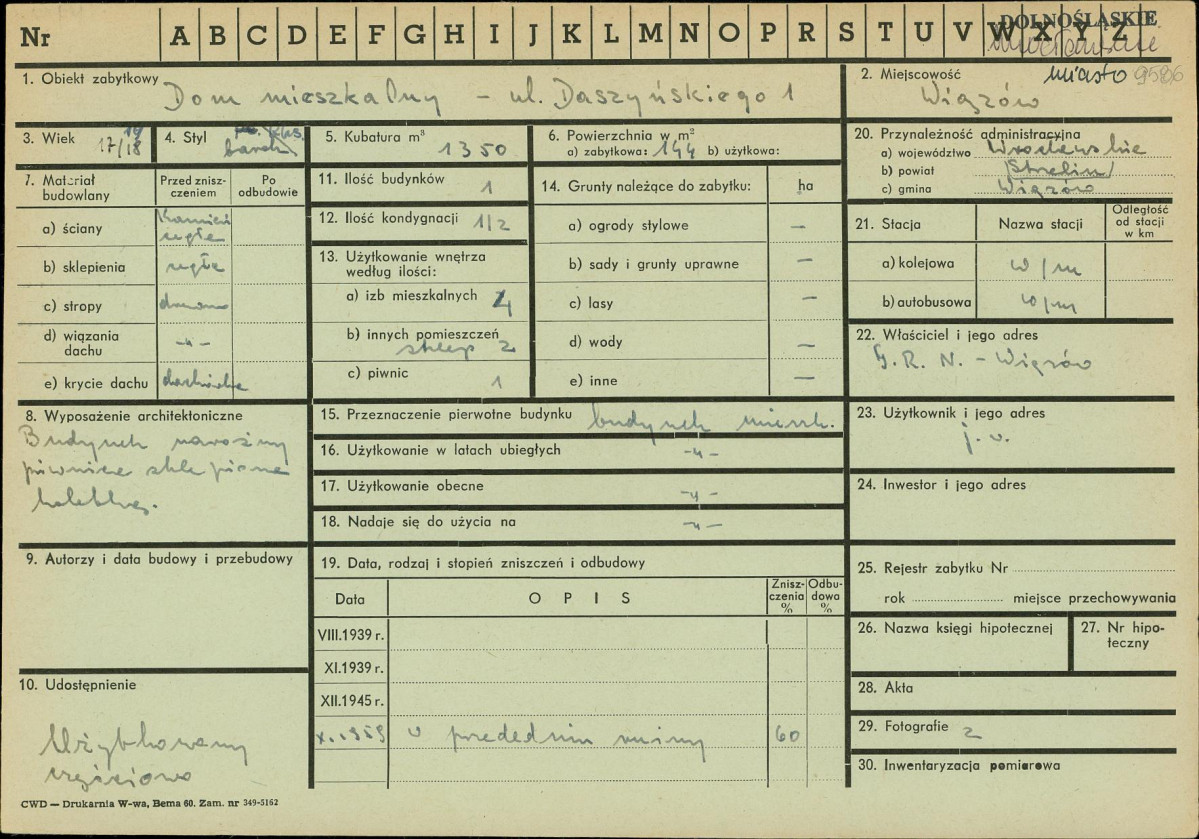 Nr A B C D E F G H I J K L M N O P R S T U V W X Y Z
DOLNOŚLĄSKIE
miasto 9586
1. Obiekt zabytkowy Dom mieszkalny – ul. Daszyńskiego 1
2. Miejscowość
Wiązów
3. Wiek 17/18 19
4. Styl barok
5. Kubatura m³ 1350
6. Powierzchnia w m²
a) zabytkowa: 144 b) użytkowa:
20. Przynależność administracyjna
a) województwo Wrocławskie
b) powiat Strzelin
c) gmina Wiązów
7. Materiał budowlany
Przed zniszczeniem
Po odbudowie
a) ściany Kamień cegła
b) sklepienia cegła
c) stropy drewno
d) wiązania dachu -"-
e) krycie dachu dachówka
11. Ilość budynków 1
12. Ilość kondygnacji 1/2
13. Użytkowanie wnętrza
według ilości:
a) izb mieszkalnych 4
b) innych pomieszczeń
sklep 2
c) piwnic 1
14. Grunty należące do zabytku: ha
a) ogrody stylowe —
b) sady i grunty uprawne —
c) lasy —
d) wody —
e) inne —
21. Stacja
Nazwa stacji
Odległość
od stacji
w km
a) kolejowa w/m
b) autobusowa w/m
22. Właściciel i jego adres
G.R.N. – Wiązów
8. Wyposażenie architektoniczne
Budynek narożny
piwnice sklepione
kolebką.
15. Przeznaczenie pierwotne budynku budynek mieszk.
16. Użytkowanie w latach ubiegłych -"-
17. Użytkowanie obecne -"-
18. Nadaje się do użycia na -"-
23. Użytkownik i jego adres
j.w.
24. Inwestor i jego adres
9. Autorzy i data budowy i przebudowy
19. Data, rodzaj i stopień zniszczeń i odbudowy
Data
OPIS
Znisz-
czenia
%
Odbu-
dowa
%
VIII.1939 r.
XI.1939 r.
XII.1945 r.
X.1959 w przededniu ruiny 60
25. Rejestr zabytku Nr
rok miejsce przechowywania
26. Nazwa księgi hipotecznej
27. Nr hipo-
teczny
28. Akta
29. Fotografie 2
30. Inwentaryzacja pomiarowa
10. Udostępnienie
Użytkowany
częściowo
CWD — Drukarnia W-wa, Bema 60. Zam. nr 349-5162